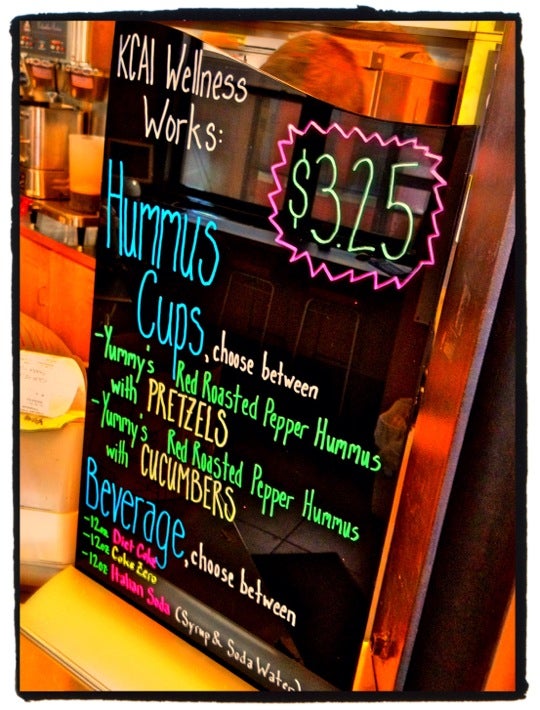 KCAI Wellness
Works:
$3.25
Hummus
Cups, choose between
-Yummy's Red Roasted Pepper Hummus
with PRETZELS
-Yummy's Red Roasted Pepper Hummus
with CUCUMBERS
Beverage, choose between
-12oz Diet Coke
-12oz Coke Zero
-12oz Italian Soda (Syrup & Soda Water)